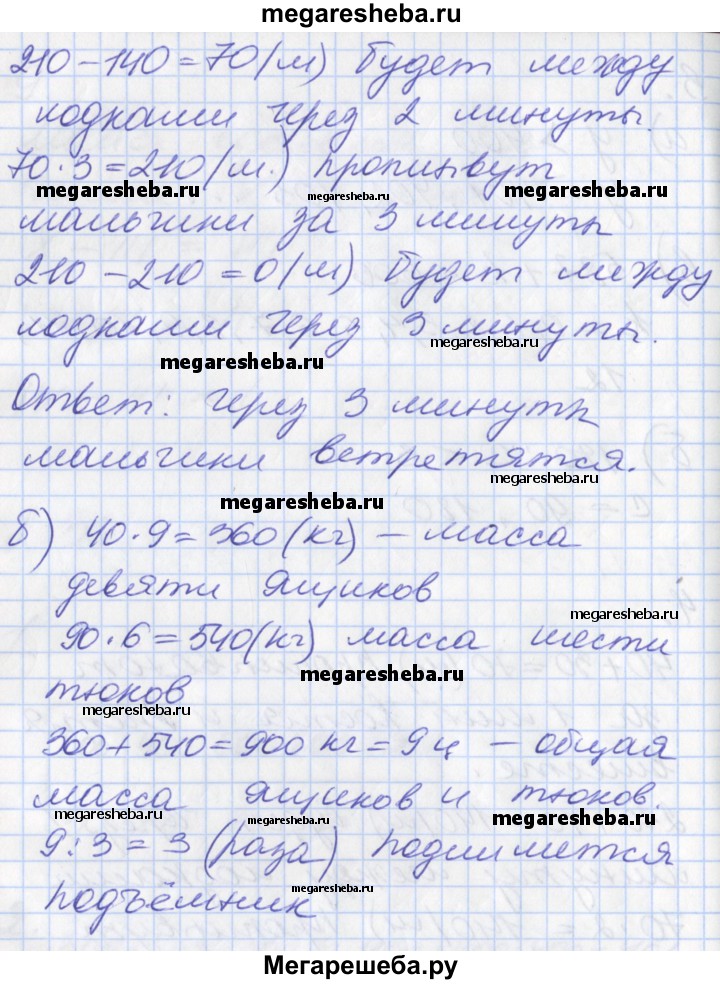 megaresheba.ru
210 – 140 = 70 (м) будет между
лодками через 2 минуты.
70 · 3 = 210 (м.) проплывут
megaresheba.ru megaresheba.ru megaresheba.ru
мальчики за 3 минуты
210 – 210 = 0 (м) будет между
лодками через 3 минуты.
megaresheba.ru
megaresheba.ru
Ответ: через 3 минуты
мальчики встретятся.
megaresheba.ru
megaresheba.ru
б) 40 · 9 = 360 (кг) – масса
девяти ящиков
megaresheba.ru
90 · 6 = 540 (кг) масса шести
megaresheba.ru
тюков
megaresheba.ru
360 + 540 = 900 кг = 9 ц – общая
масса ящиков и тюков.
megaresheba.ru megaresheba.ru megaresheba.ru
9 : 3 = 3 (раза) поднимется
megaresheba.ru
подъёмник
Мегарешеба.ру